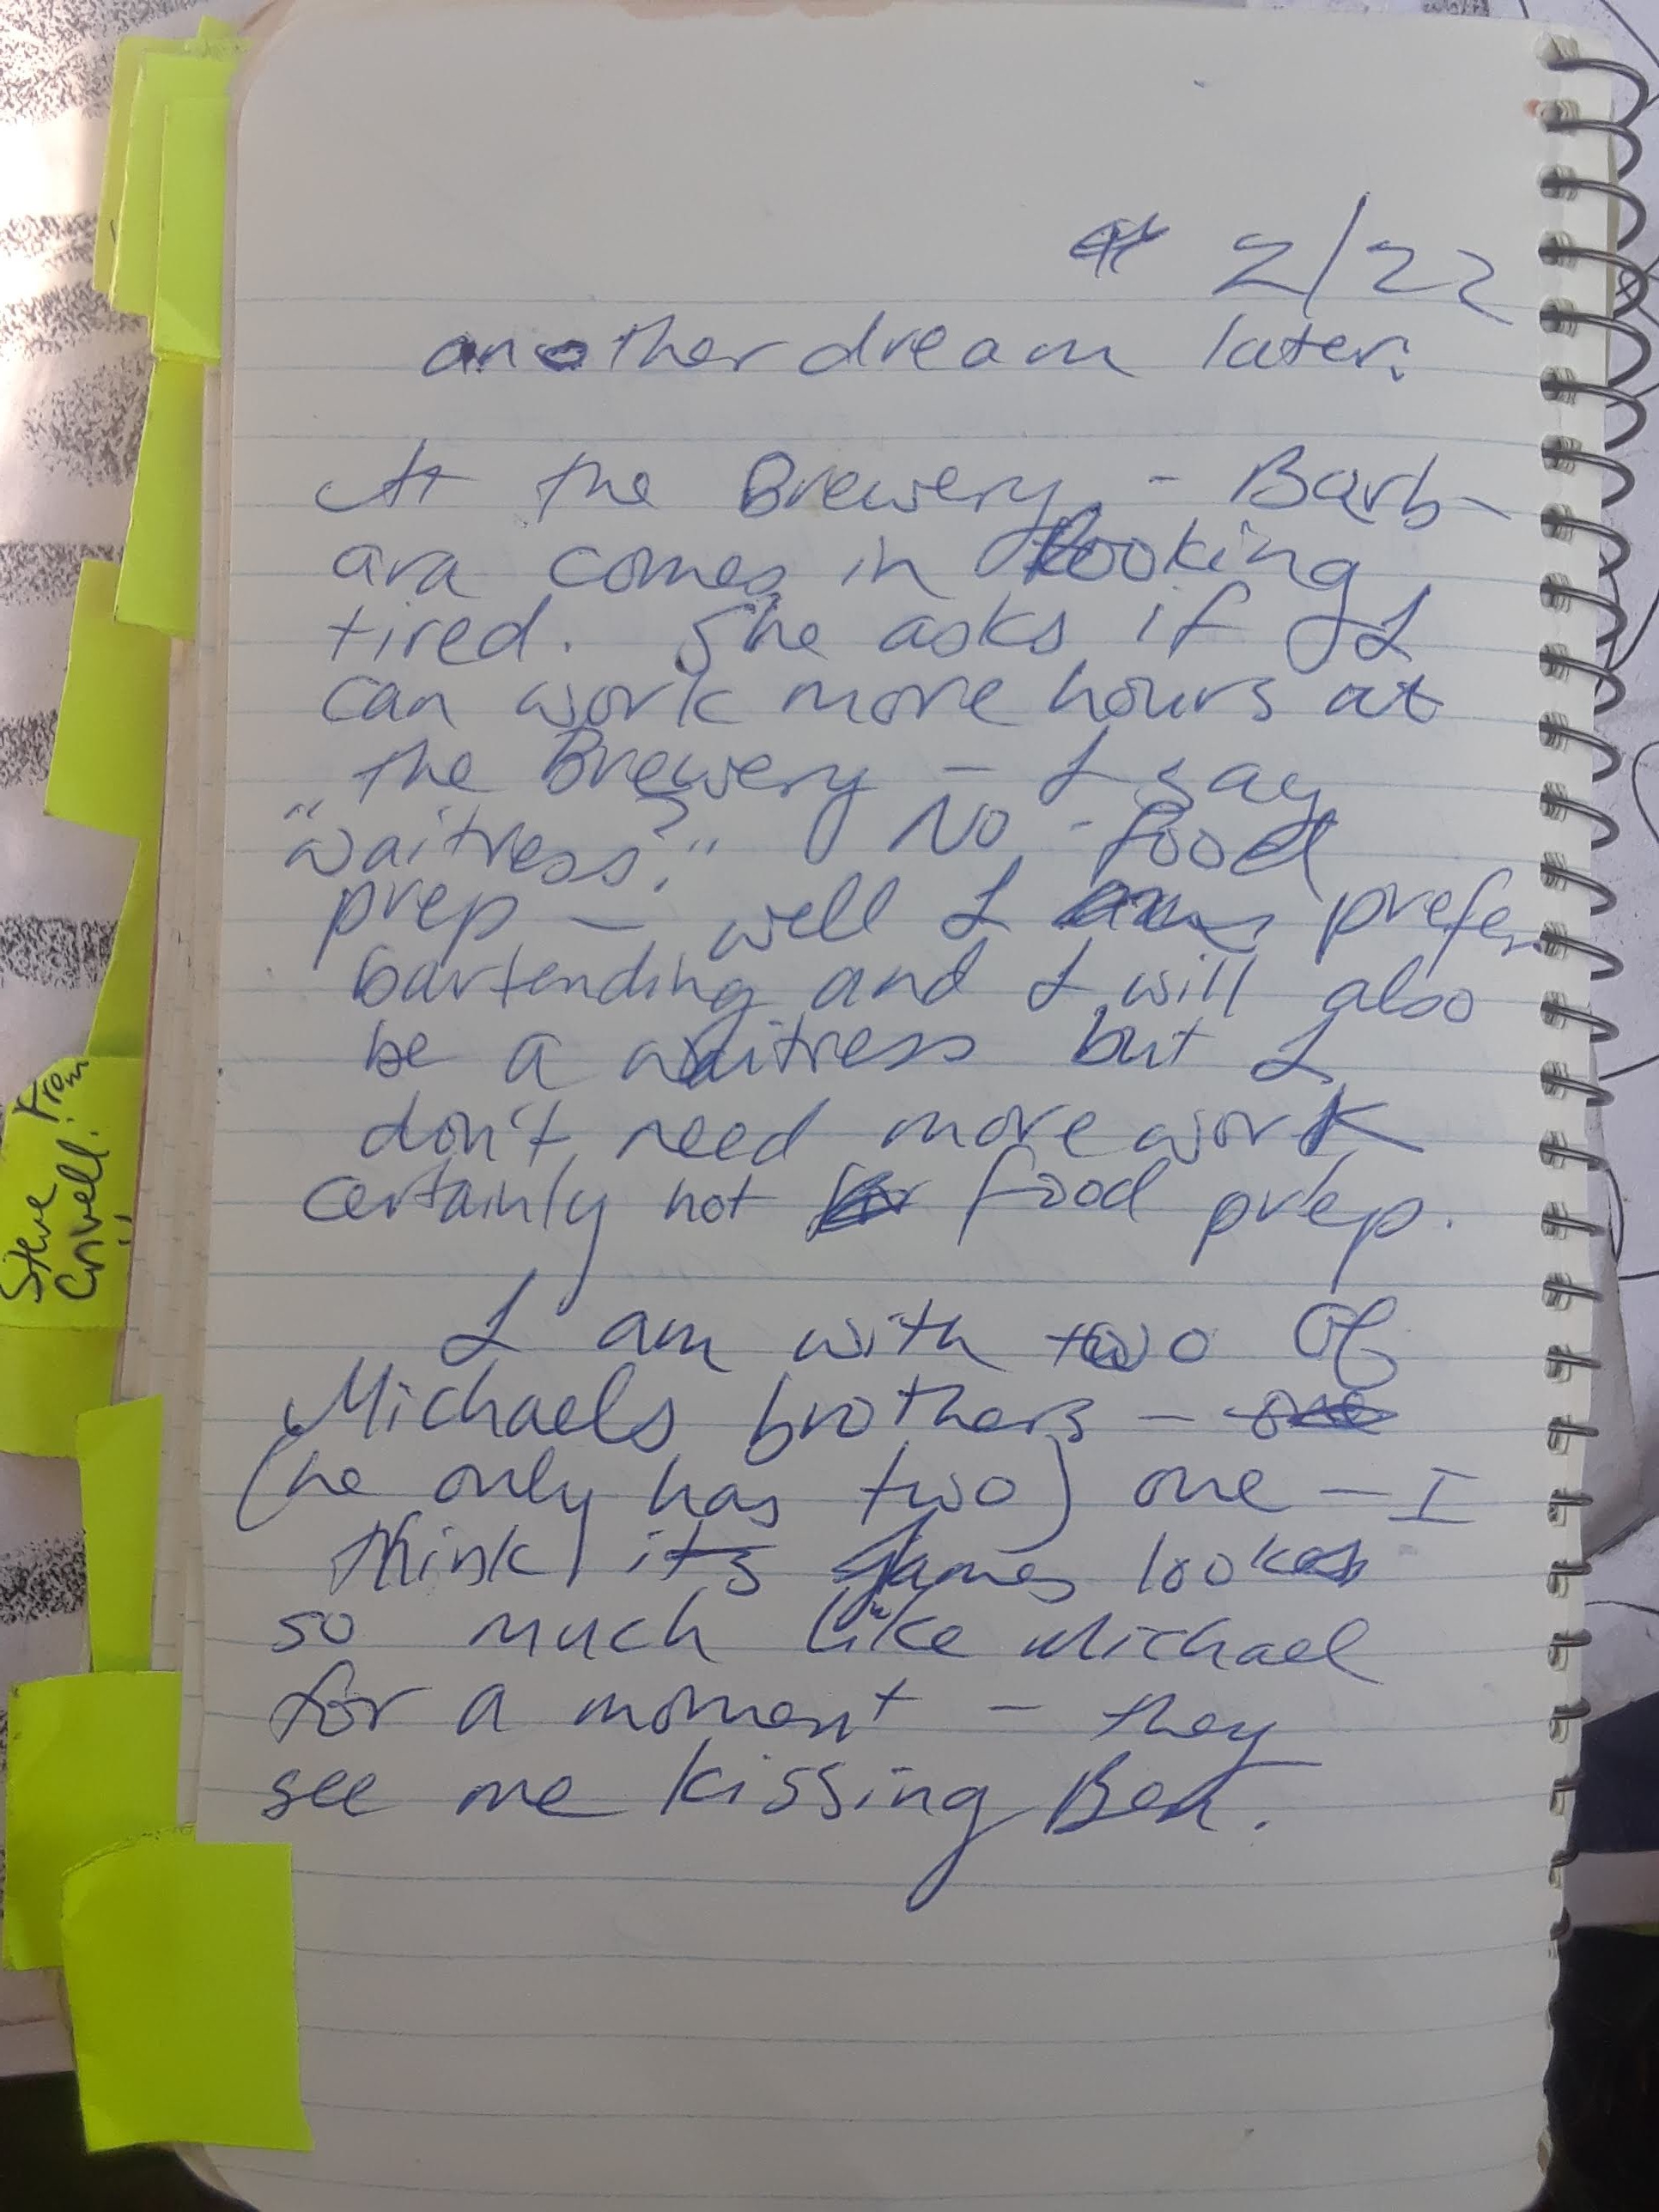 2/22
another dream later:
At the Brewery - Barb-
ara comes in looking
tired. She asks if I
can work more hours at
the Brewery - I say
"waitress?" No - food
prep - well I prefer
bartending and I will also
be a waitress but I
don't need more work
certainly not food prep.
I am with two of
Michaels brothers - one
(he only has two) one - I
think its James looks
so much like Michael
for a moment - they
see me kissing Ben.
From
Steve